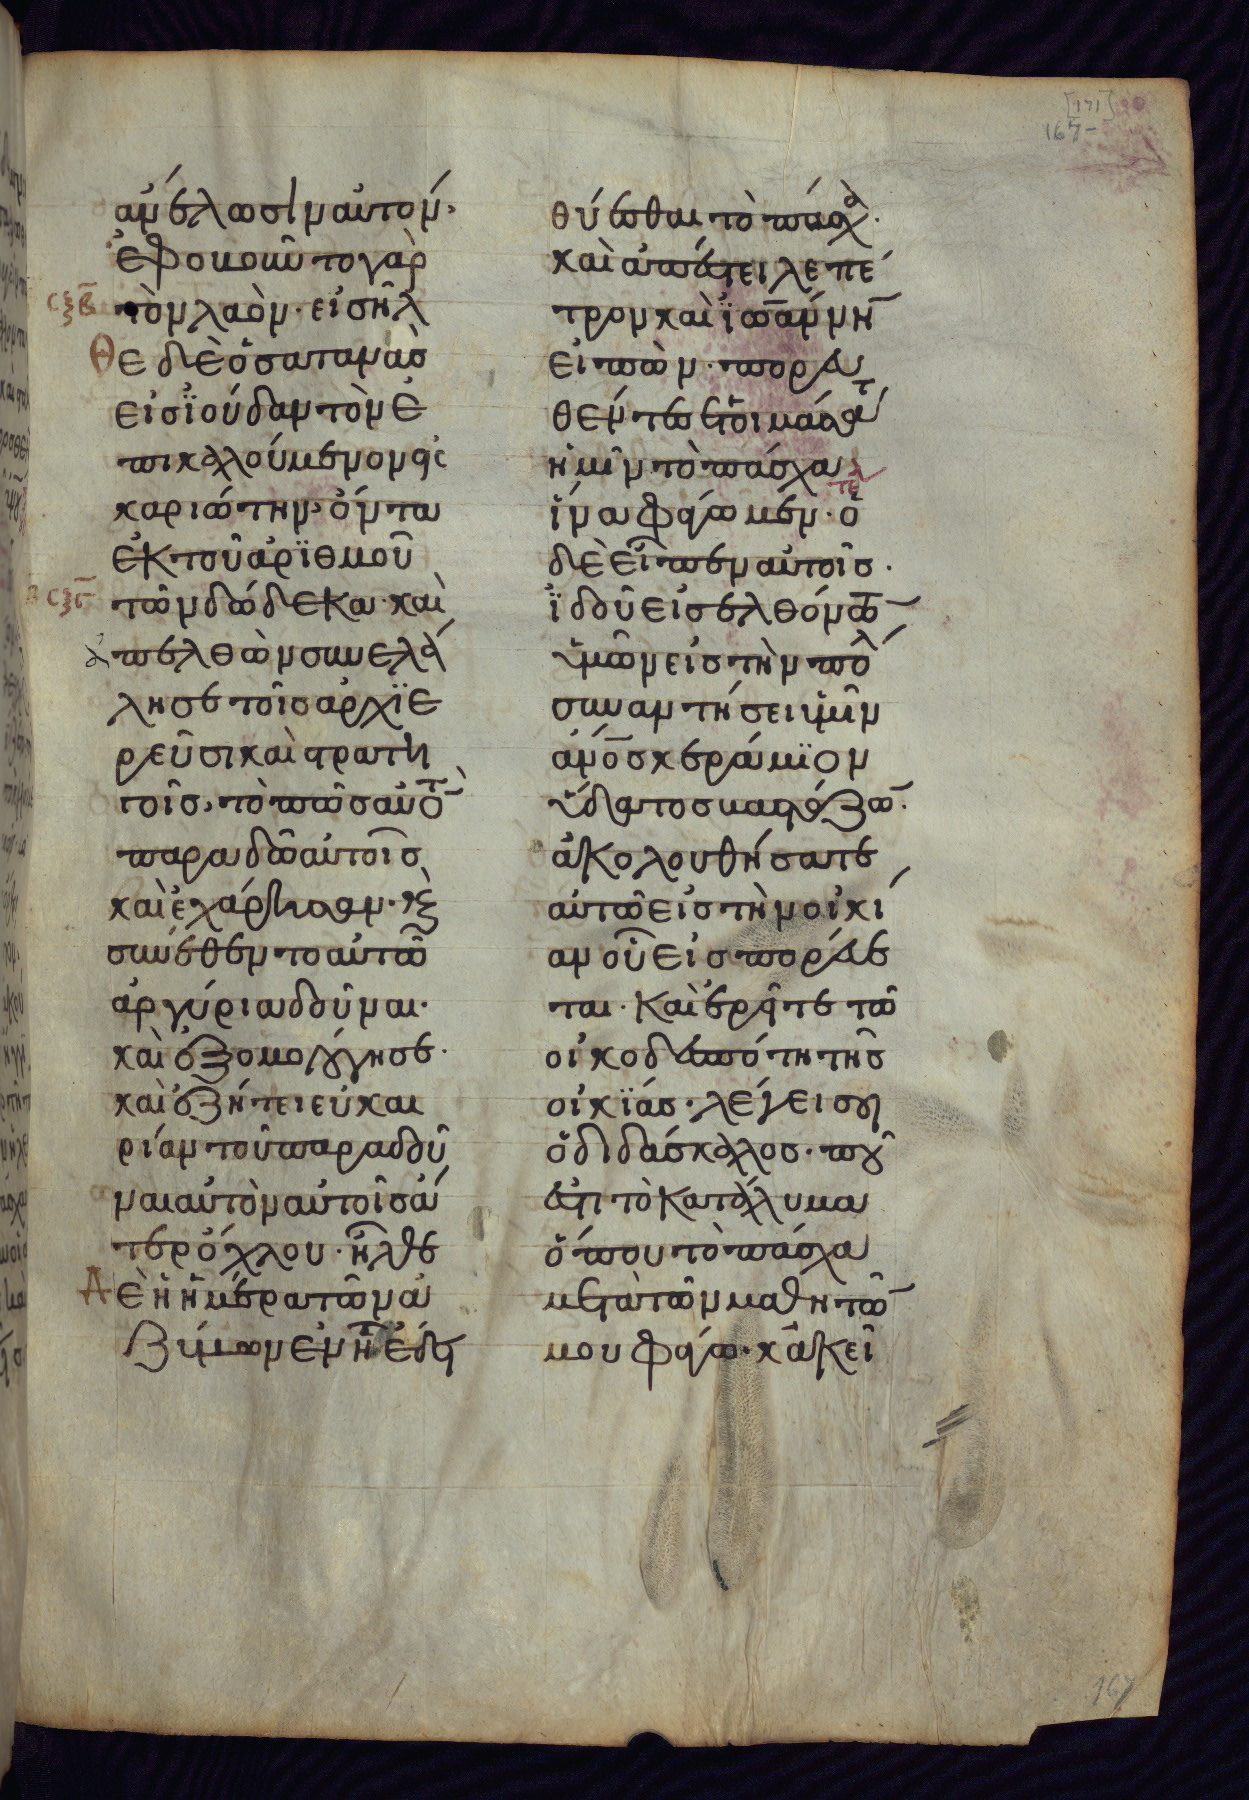 [171]
167
ἀνέλωσιν αὐτόν·
ἐφοβοῦντο γὰρ
σξβ τὸν λαόν· εἰσῆλ
θε δὲ ὁ σατανᾶσ
εἰσ ἰούδαν τὸν ἐ
πικαλούμενον ἰσ
καριώτην· ὄντα
ἐκ τοῦ ἀρϊθμοῦ
σξγ τῶν δώδεκα· καὶ
ἀπελθὼν συνελά
λησε τοῖσ ἀρχϊε
ρεῦσι καὶ στρατη
γοῖσ, τὸ πῶσ αὐτὸ
παραδῶ αὐτοῖσ
καὶ ἐχάρησαν· κὲ
συνέθεντο αὐτῶ
ἀργύρια δοῦναι·
καὶ ἐξομολόγησε·
καὶ ἐζήτει εὐκαι
ρίαν τοῦ παραδοῦ
ναι αὐτὸν αὐτοῖσ ἄ
τερ ὄχλου· ἦλθε
δὲ ἡ ἡμέρα τῶν ἀ
ζύμων ἐν ἧ ἔδει
θύεσθαι τὸ πάσχα·
καὶ ἀπέστειλε πέ
τρον καὶ ἰωάννην
εἰπών· πορευ
θέντεσ ἑτοιμάσατε
ἡμῖν τὸ πάσχα
ἵνα φάγωμεν· ὁ
δὲ εἶπεν αὐτοῖσ·
ἰδοῦ εἰσελθόντων
ὑμῶν εἰσ τὴν πόλ
συναντήσει ὑμῖν
ἄνοσ κεράμϊον
ὕδατοσ βαστάζων·
ἀκολουθήσατε
αὐτῶ εἰσ τὴν οἰκί
αν οὗ εἰσπορεύε
ται· καὶ ἐρεῖτε τῶ
οἰκοδεσπότη τῆσ
οἰκϊάσ· λέγει σοι
ὁ διδάσκαλοσ· ποῦ
ἐστι τὸ κατάλυμα
ὅπου τὸ πάσχα
μετὰ τῶν μαθητῶν
μου φάγω· κἀκεῖ
167